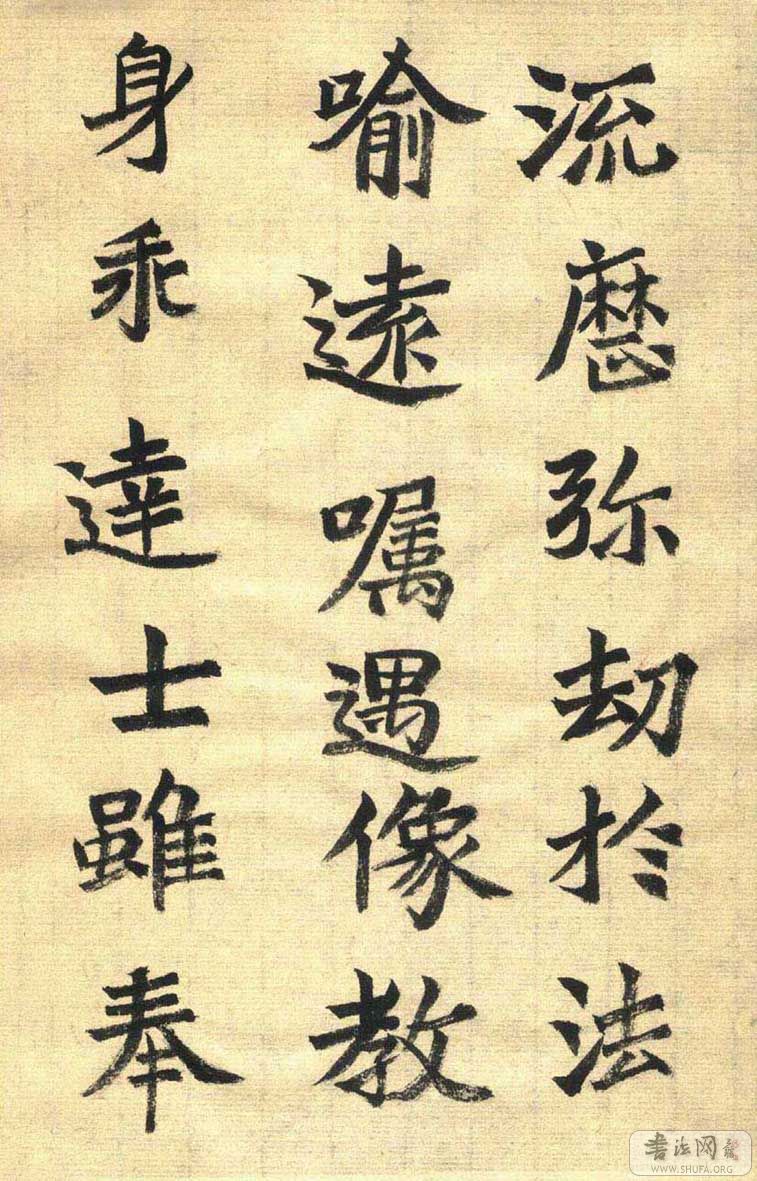 流歴弥劫於法
喻遠嘱遇像教
身乖達士雖奉
書法网
WWW.SHUFA.ORG